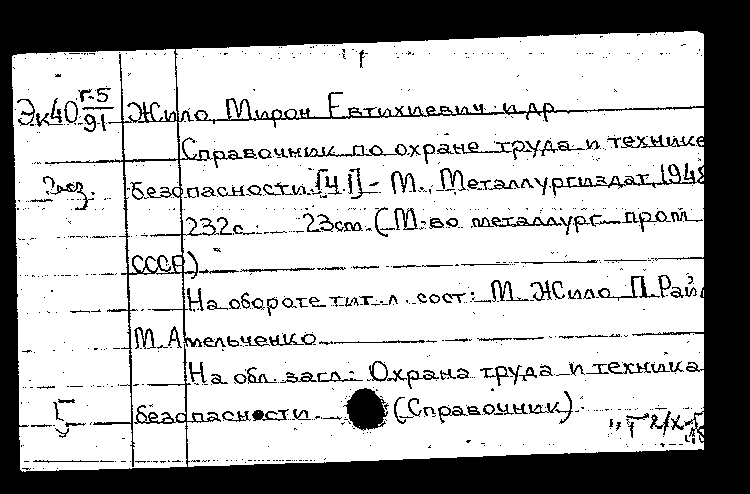 Эк40 г-5/91 Жило, Мирон Евтихиевич и др.
Справочник по охране труда и технике
2 экз. безопасности. [Ч.1] - М., Металлургиздат, 1948
232с. 23cm. (М-во металлург. пром
СССР)
На обороте тит. л. сост: М. Жило, П. Рай
М. Амельченко
На обл. загл.: Охрана труда и техника
Б безопасности. (Справочник).